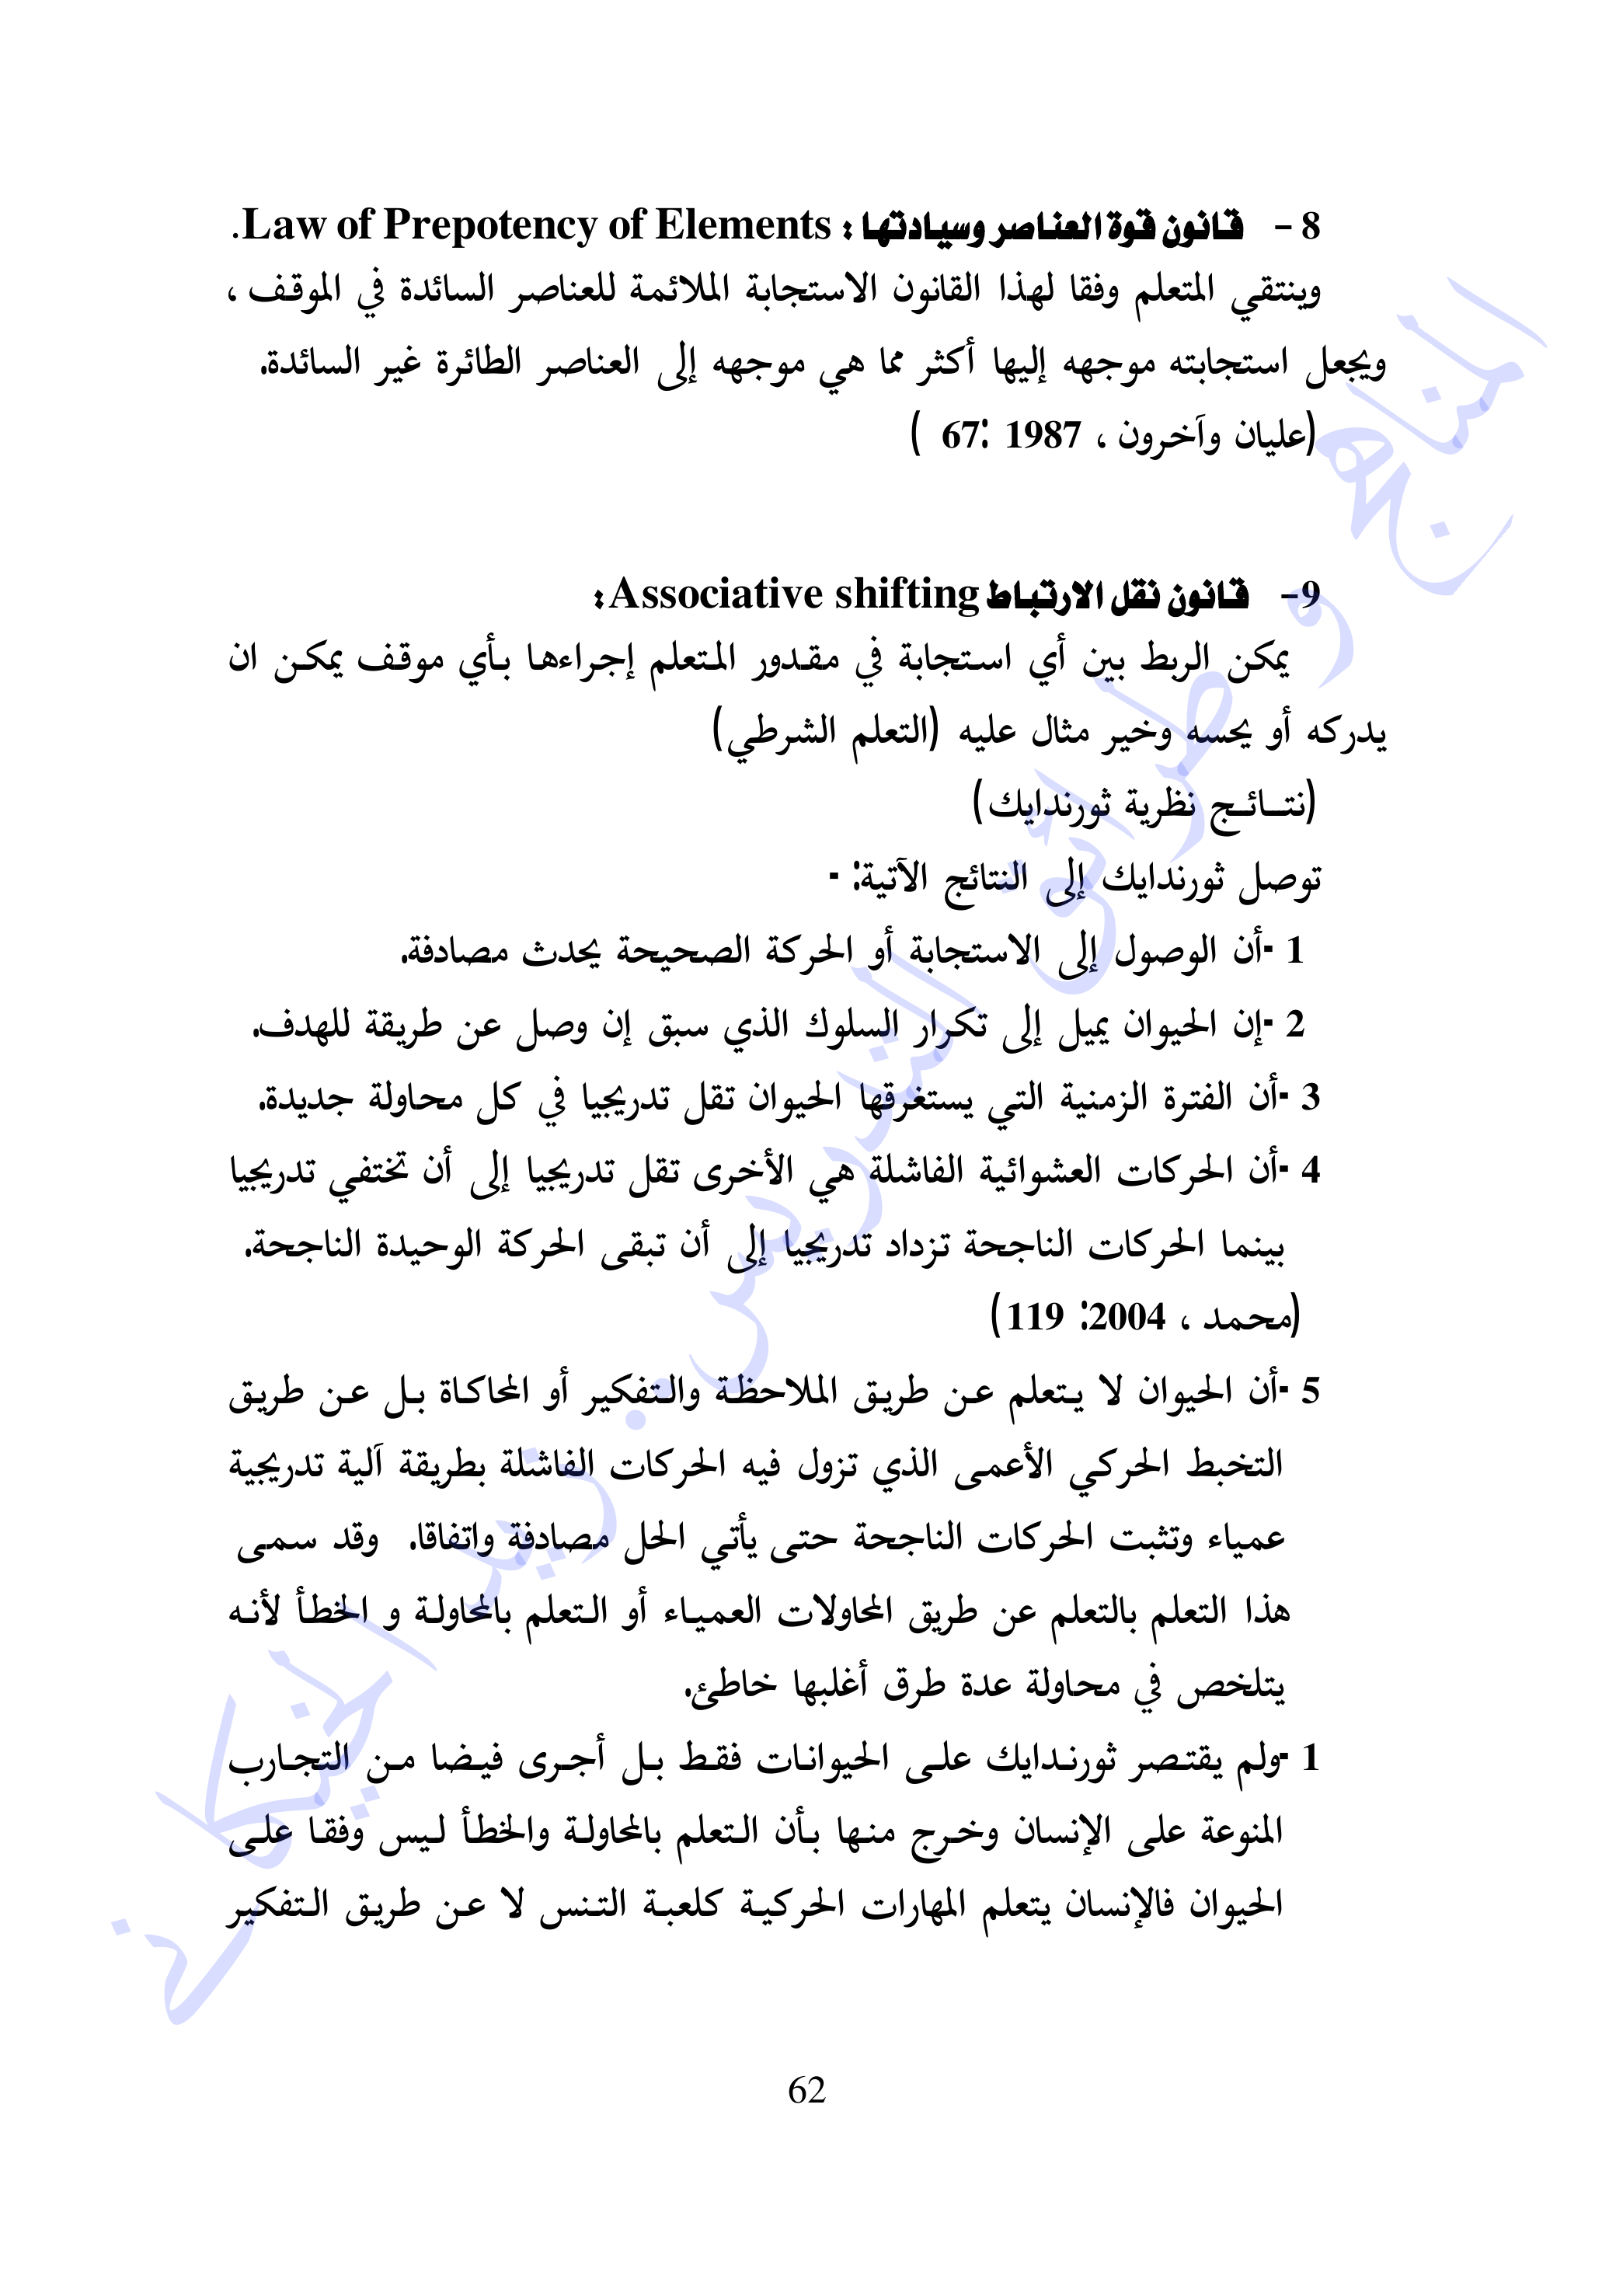 8 – قانون قوة العناصر وسيادتها : Law of Prepotency of Elements.
وينتقي المتعلم وفقا لهذا القانون الاستجابة الملائمة للعناصر السائدة في الموقف ،
ويجعل استجابته موجهه إليها أكثر مما هي موجهه إلى العناصر الطائرة غير السائدة.
(عليان وآخرون ، 1987 :67 )
9– قانون نقل الارتباط Associative shifting :
يمكن الربط بين أي استجابة في مقدور المتعلم إجراءها بأي موقف يمكن ان
يدركه أو يحسه وخير مثال عليه (التعلم الشرطي)
(نتائج نظرية ثورندايك)
توصل ثورندايك إلى النتائج الآتية: -
1 -أن الوصول إلى الاستجابة أو الحركة الصحيحة يحدث مصادفة.
2 -إن الحيوان يميل إلى تكرار السلوك الذي سبق إن وصل عن طريقة للهدف.
3 -أن الفترة الزمنية التي يستغرقها الحيوان تقل تدريجيا في كل محاولة جديدة.
4 -أن الحركات العشوائية الفاشلة هي الأخرى تقل تدريجيا إلى أن تختفي تدريجيا
بينما الحركات الناجحة تزداد تدريجيا إلى أن تبقى الحركة الوحيدة الناجحة.
(محمد ، 2004: 119)
5 -أن الحيوان لا يتعلم عن طريق الملاحظة والتفكير أو المحاكاة بل عن طريق
التخبط الحركي الأعمى الذي تزول فيه الحركات الفاشلة بطريقة آلية تدريجية
عمياء وتثبت الحركات الناجحة حتى يأتي الحل مصادفة واتفاقا. وقد سمى
هذا التعلم بالتعلم عن طريق المحاولات العمياء أو التعلم بالمحاولة و الخطأ لأنه
يتلخص في محاولة عدة طرق أغلبها خاطئ.
1 -ولم يقتصر ثورندايك على الحيوانات فقط بل أجرى فيضا من التجارب
المنوعة على الإنسان وخرج منها بأن التعلم بالمحاولة والخطأ ليس وفقا على
الحيوان فالإنسان يتعلم المهارات الحركية كلعبة التنس لا عن طريق التفكير
62
المناهج و طرائق التدريس . زيد الخيكاني